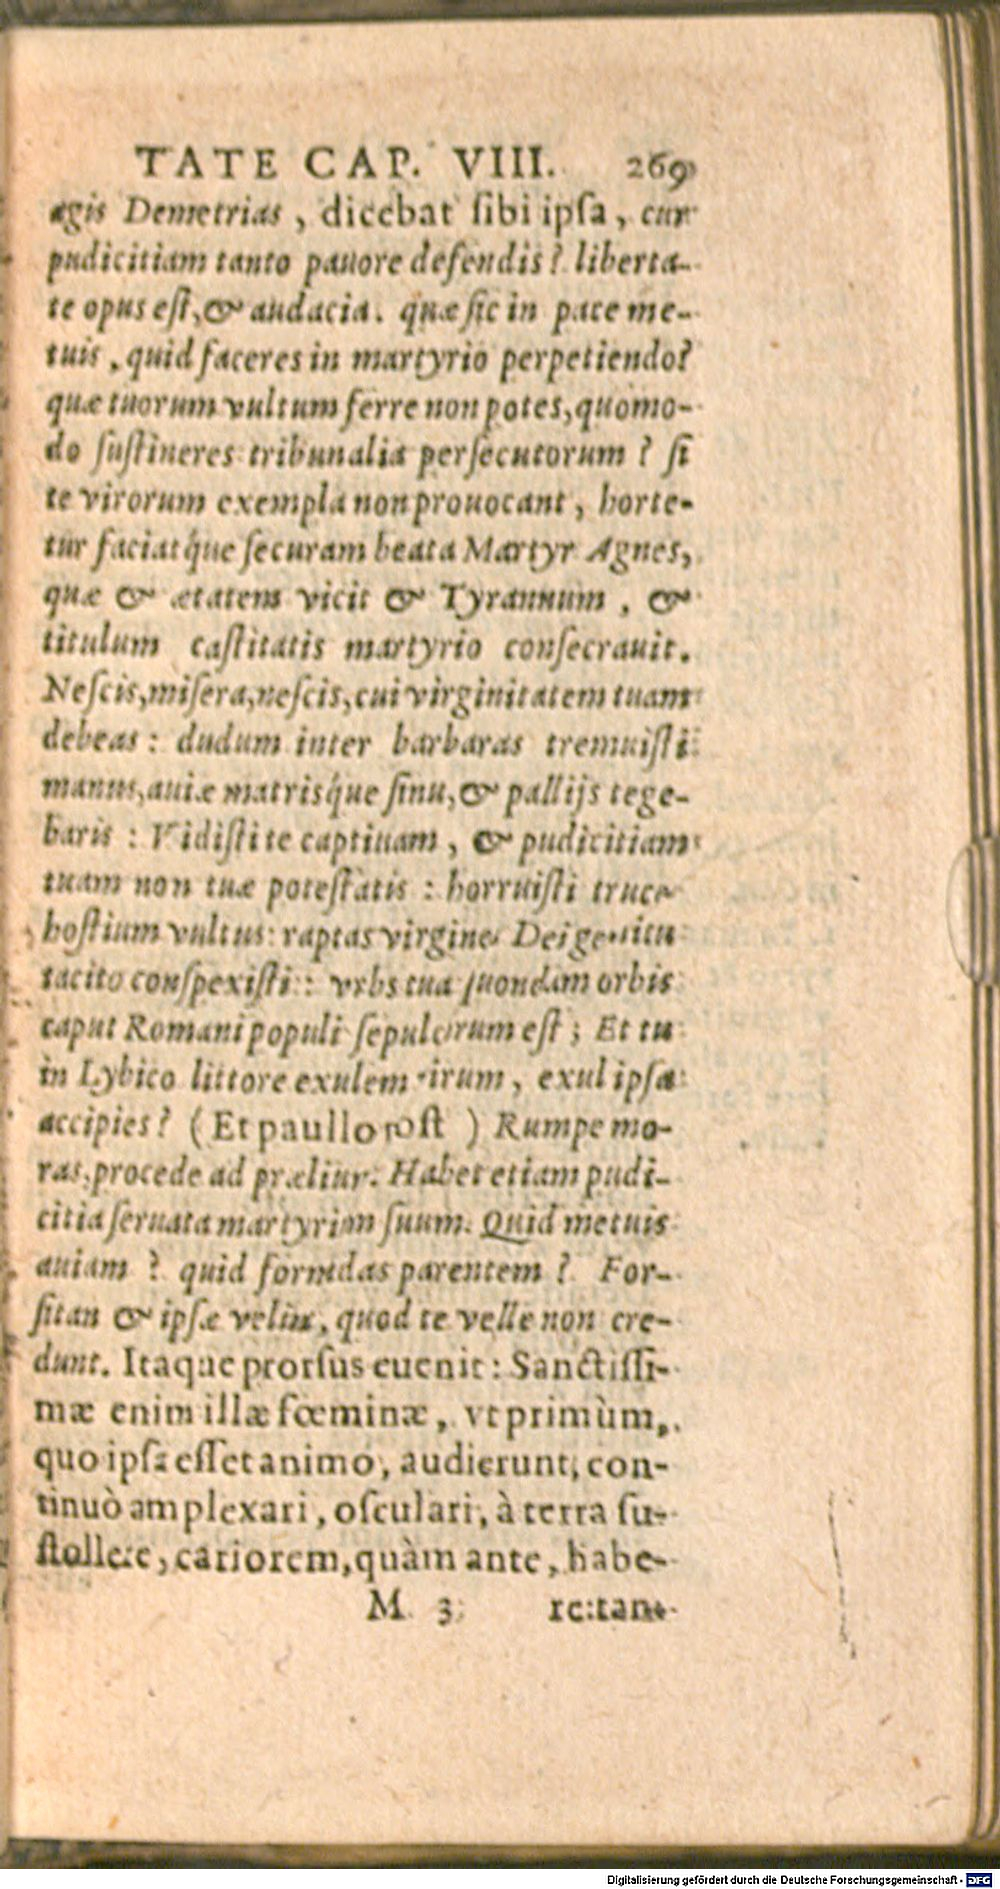 TATE CAP. VIII. 269
agis Demetrias, dicebat sibi ipsa, cur
pudicitiam tanto pauore defendis? liberta-
te opus est, & audacia. quæ sic in pace me-
tuis, quid faceres in martyrio perpetiendo?
quæ tuorum vultum ferre non potes, quomo-
do sustineres tribunalia persecutorum? si
te virorum exempla non prouocant, horte-
tur faciatq́ue securam beata Martyr Agnes,
quæ & ætatem vicit & Tyrannum, &
titulum castitatis martyrio consecrauit.
Nescis, misera, nescis, cui virginitatem tuam
debeas: dudum inter barbaras tremuisti
manus, auiæ matrisq́ue sinu, & pallijs tege-
baris: Vidisti te captiuam, & pudicitiam
tuam non tuæ potestatis: horruisti truces
hostium vultus: raptas virgines Dei gemitu
tacito conspexisti: vrbs tua quondam orbis
caput Romani populi sepulcrum est; Et tu
in Lybico littore exulem virum, exul ipsa
accipies? (Et paullo post) Rumpe mo-
ras, procede ad prælium. Habet etiam pudi-
citia seruata martyrium suum. Quid metuis
auiam? quid formidas parentem? For-
sitan & ipsæ velint, quod te velle non cre-
dunt. Itaque prorsus euenit: Sanctissi-
mæ enim illæ fœminæ, vt primùm,
quo ipsa esset animo, audierunt, con-
tinuò amplexari, osculari, à terra su-
stollere, cariorem, quàm ante, habe-
M 3 re: tan-
Digitalisierung gefördert durch die Deutsche Forschungsgemeinschaft - DFG